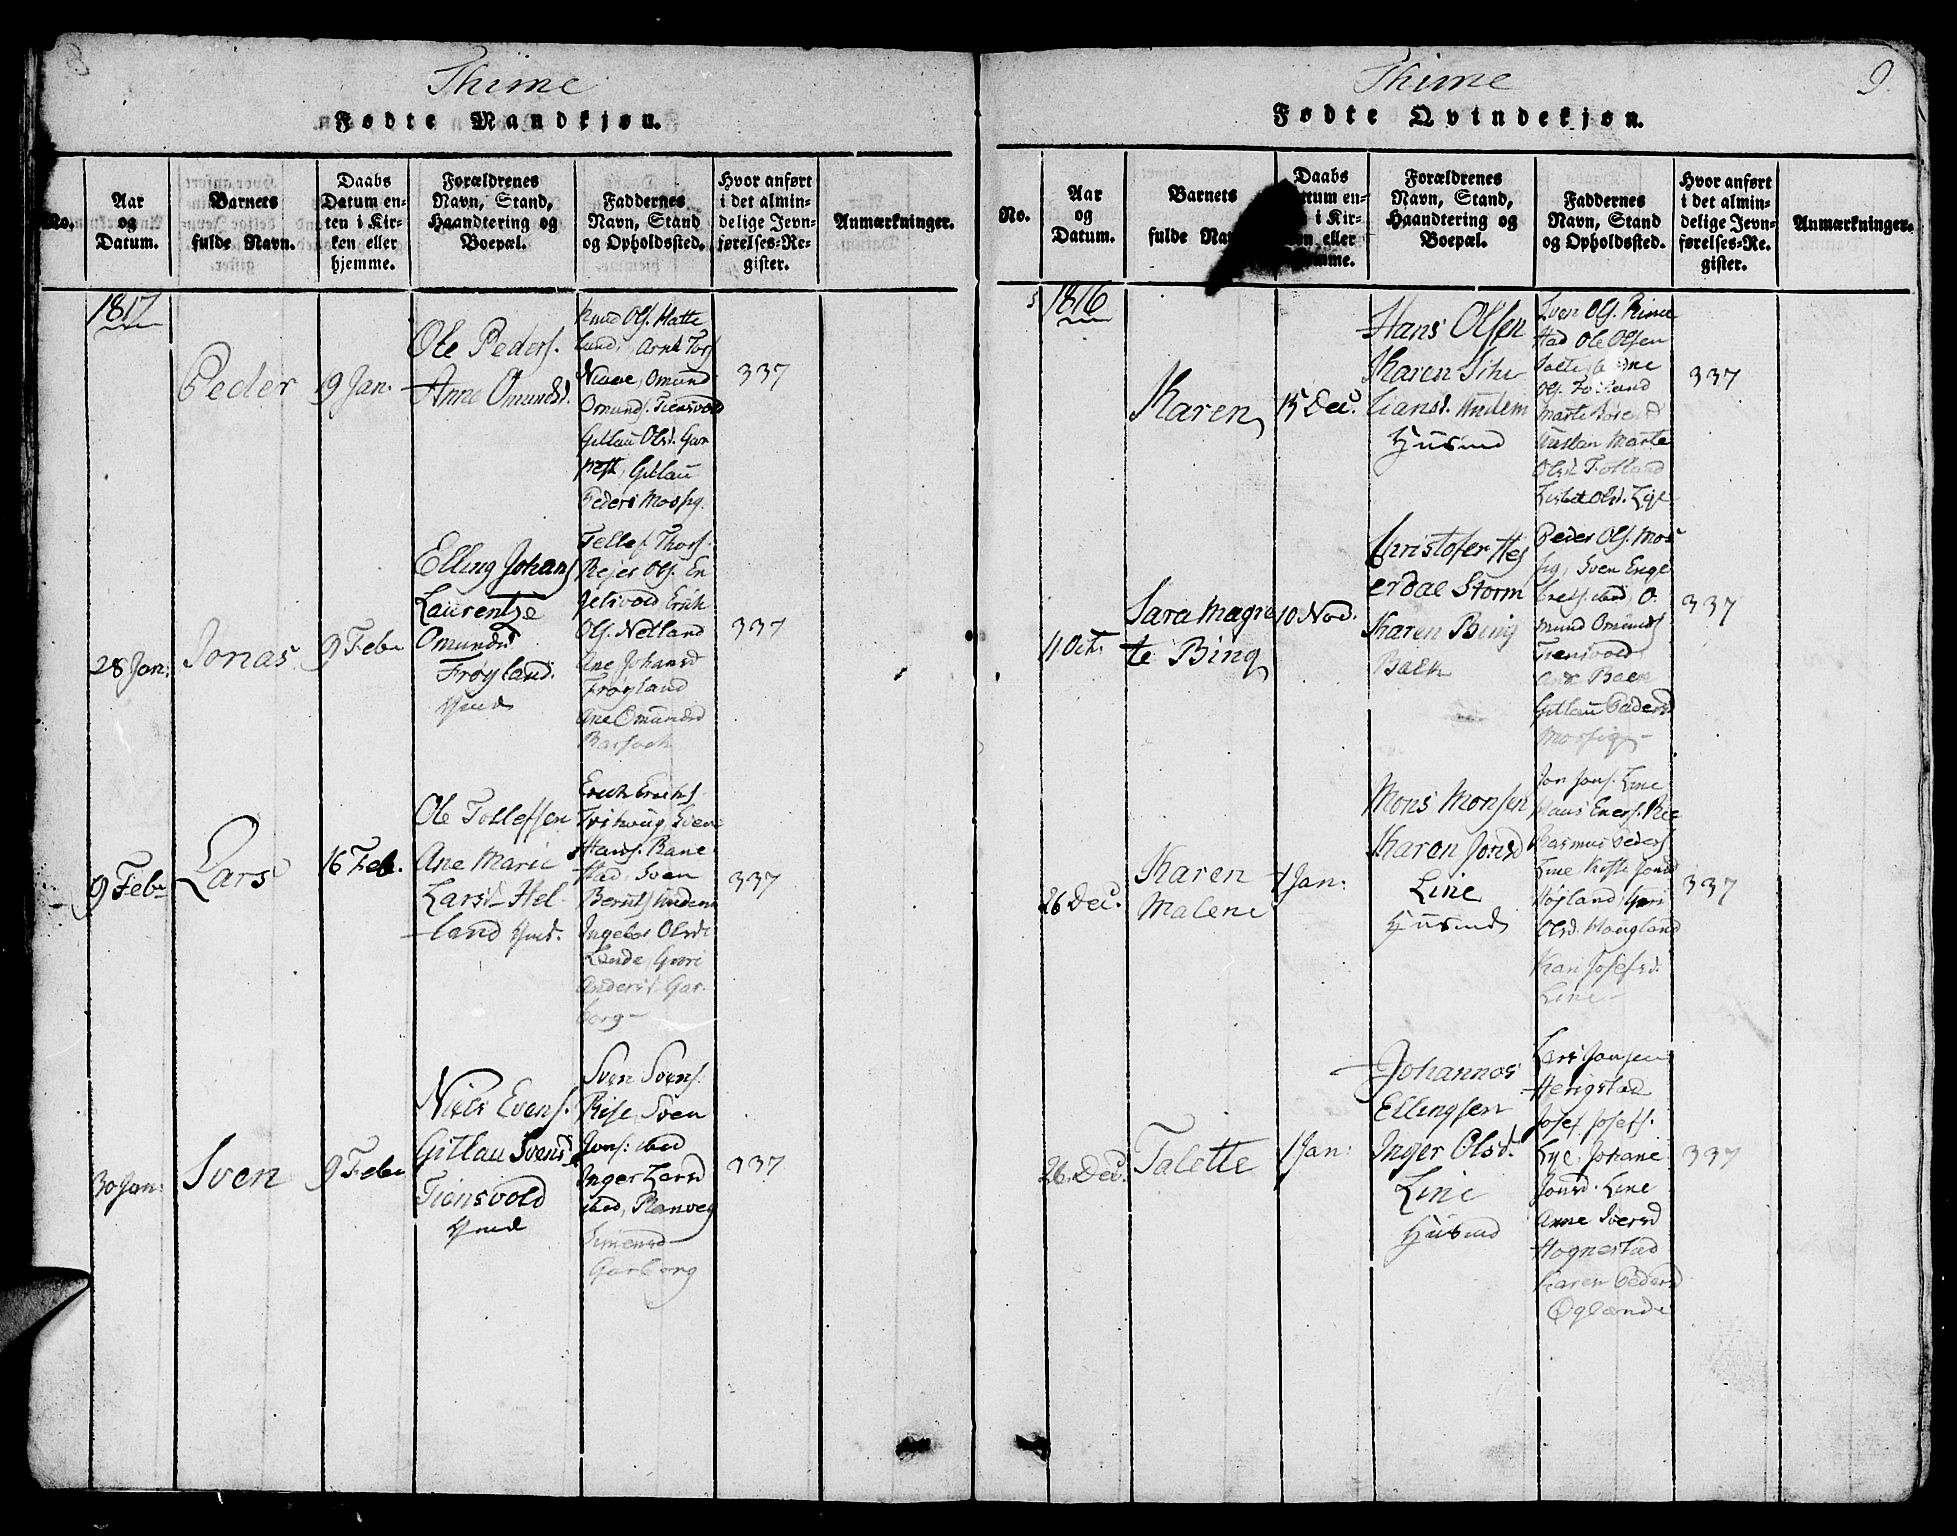 8
Thime
Fødte Mandkjøn.
No.
Aar
og
Datum.
Barnets
fulde Navn.
Daabs
Datum en-
ten i Kir-
ken eller
hjemme.
Forældrenes
Navn, Stand,
Haandtering og
Boepæl.
Faddernes
Navn, Stand
og Opholdssted.
Hvor anført
i det almin-
delige Jevn-
førelses-Re-
gister.
Anmærkninger.
1817
Peder
19 Jan.
Ole Peders.
Anne Omundsd.
Knud Ols. Hatte
land, Arnt Tors
Omund
Omunds. Tiensvold
Gitlau Olsd. Gar
Gitlau
Peders Mossig.
337
28 Jan:
Jonas
9 Febr
Elling Johans
Laurentze
Omundsd
Frøyland.
Tellef Thors.
Rejer Ols. En
jelsvold Erich
Ols. Netland
Ane Johansd
Frøyland
Ane Omundsd
337
9 Febr
Lars
16 Feb.
Ole Tollefsen
Ane Marie
Larsd Hel-
land
Erich Erichs.
Sven
Hans. Rane
stad, Sven
Bernts Undem
Ingebor Olsd
Lende, Guri
Andersd Gar-
borg
337
30 Jan:
Sven
9 Febr
Niels Evens.
Gitlau Svensd
Tiensvold
Sven Svens.
Rise, Sven
Jons: ibid
Inger Larsd
ibid, Ranveg
Simensd
Garborg
337
9.
Thime
Fødte Qvindekjøn.
No.
Aar
og
Datum.
Barnets
fulde Nav
Daabs
tum en-
i Kir-
en eller
mme.
Forældrenes
Navn, Stand,
Haandtering og
Boepæl.
Faddernes
Navn, Stand
og Opholdssted.
Hvor anført
i det almin-
delige Jevn-
førelses-Re-
gister.
Anmærkninger.
1816
Karen
15 Dec.
Hans Olsen
Karen
Undem
Huusmd
Sven Ols.
Ole Olsen
Marte
Olsd Folland
Lisbet Olsd. Lye
337
11 Oct.
Sara Magre
te Bing
10 Nov.
Christofer Hej
erdal Storm
Karen Bing
Balk
Peder Ols. Mos
sig, Sven Enge
ibid, O
mund Omunds
Tiensvold
Balk
Gitlau Pedersd
Mossige
337
26 Dec.
Karen
Malene
1 Jan:
Mons Monsen
Karen Jonsd
Line
Huusmd
Jon Jons. Line
Rasmus Peders
Line Jonsd
Høyland Guri
Olsd. Haugland
Josefsd.
Line
337
26. Dec.
Talette
1 Jan:
Johannes
Ellingsen
Inger Olsd.
Line
Huusmd
Lars Jansen
Herigstad
Josef Josefs.
Lye, Johane
Jonsd. Line
Anne Sversd
Hognestad
Karen Pedersd
Oglænde
337